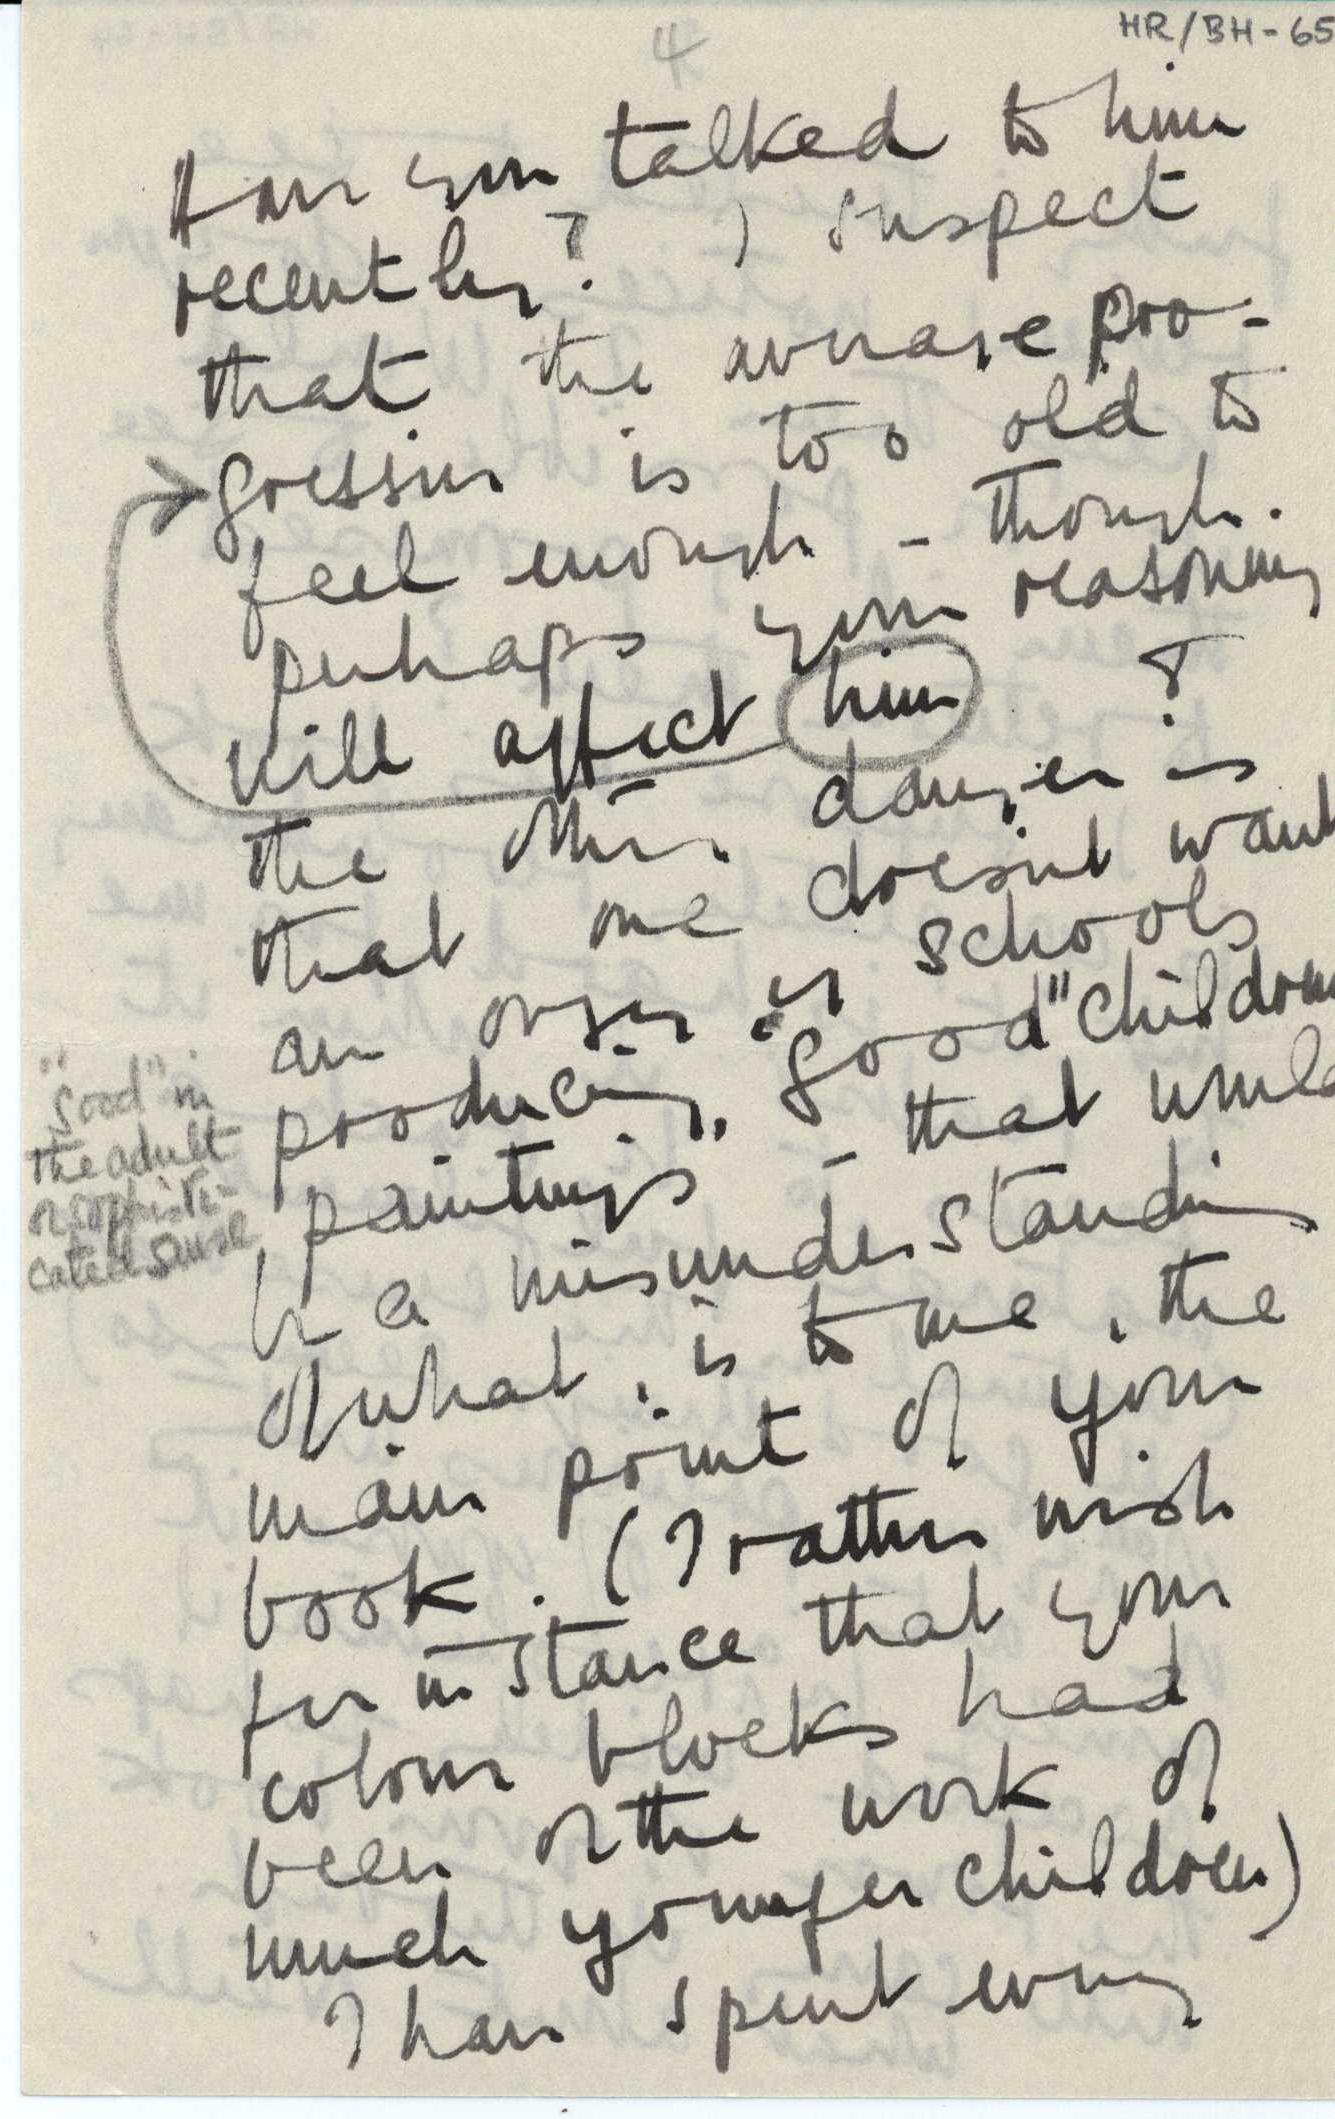 HR/BH-65
4
Have you talked to him
recently? I suspect
that the average pro-
fessor is too old to
feel enough - though
perhaps your reasoning
will affect him ?
the other danger is
that one doesn't want
an orgy of schools
producing, "good" children
paintings - that would
"good" in
the adult
or sophisti-
cated sense
be a misunderstanding
of what, is to me, the
main point of your
book. (I rather wish
for instance that your
colour blocks had
been of the work of
much younger children)
I have spent every